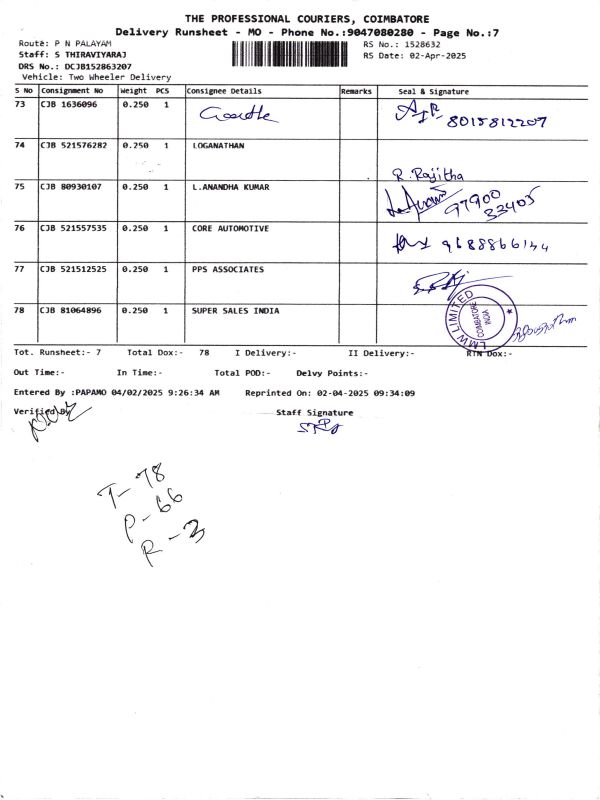 THE PROFESSIONAL COURIERS, COIMBATORE
Delivery Runsheet - MO - Phone No.:9047080280 - Page No.:7
Route: P N PALAYAM RS No.: 1528632
Staff: S THIRAVIYARAJ RS Date: 02-Apr-2025
DRS No.: DCJB152863207
Vehicle: Two Wheeler Delivery
S No Consignment No Weight PCS Consignee Details Remarks Seal & Signature
73 CJB 1636096 0.250 1 8015812207
74 CJB 521576282 0.250 1 LOGANATHAN
R. Rajitha
75 CJB 80930107 0.250 1 L.ANANDHA KUMAR 97900
33405
76 CJB 521557535 0.250 1 CORE AUTOMOTIVE 9688866144
77 CJB 521512525 0.250 1 PPS ASSOCIATES
78 CJB 81064896 0.250 1 SUPER SALES INDIA
LMW LIMITED
COIMBATORE
INDIA
Tot. Runsheet:- 7 Total Dox:- 78 I Delivery:- II Delivery:- RTN Dox:-
Out Time:- In Time:- Total POD:- Delvy Points:-
Entered By :PAPAMO 04/02/2025 9:26:34 AM Reprinted On: 02-04-2025 09:34:09
Verified By Staff Signature
T-78
P-66
R-3